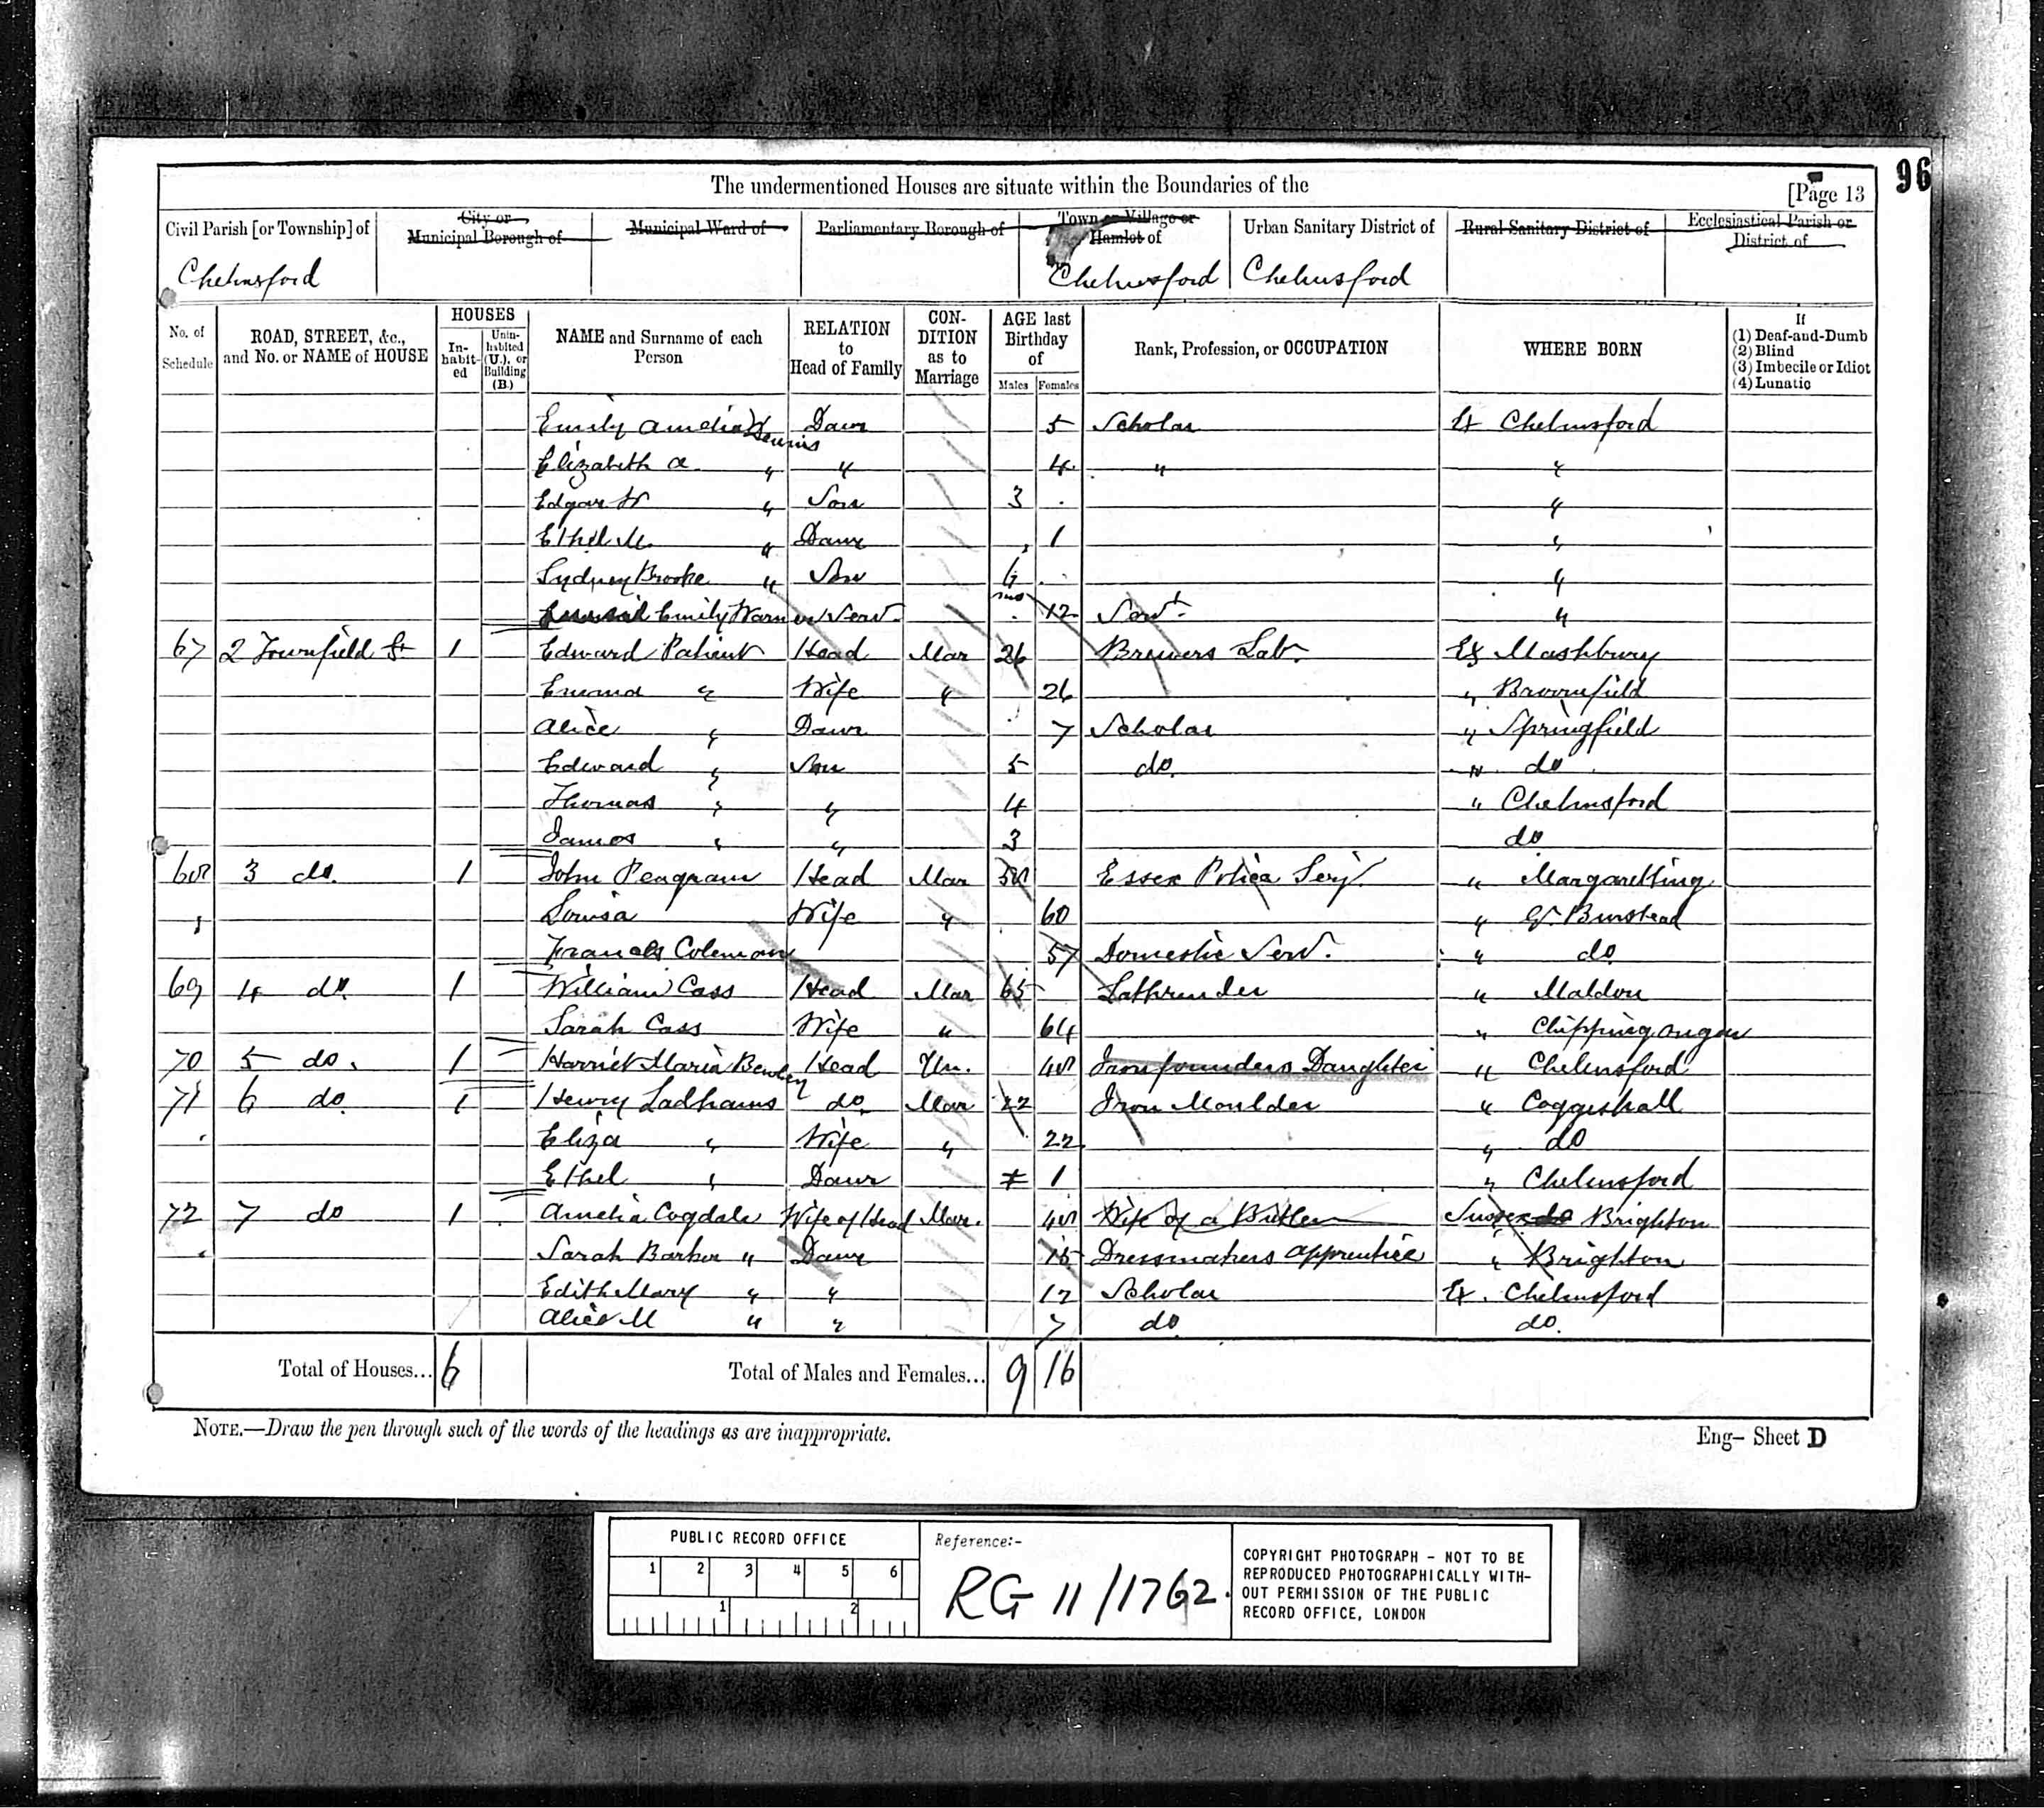 96
The undermentioned Houses are situate within the Boundaries of the
[Page 13
Civil Parish [or Township] of City or Municipal Borough of Municipal Ward of Parliamentary Borough of Town or Village or Hamlet of Urban Sanitary District of Rural Sanitary District of Ecclesiastical Parish or District of
Chelmsford Chelmsford Chelmsford
No. of Schedule ROAD, STREET, &c., and No. or NAME of HOUSE HOUSES Inhabited Uninhabited (U.), or Building (B.) NAME and Surname of each Person RELATION to Head of Family CONDITION as to Marriage AGE last Birthday of Males Females Rank, Profession, or OCCUPATION WHERE BORN If (1) Deaf-and-Dumb (2) Blind (3) Imbecile or Idiot (4) Lunatic
Emily Amelia Dennis Daur 5 Scholar Ex Chelmsford
Elizabeth A. " " 4 " "
Edgar W " Son 3 "
Ethel M. " Daur 1 "
Sydney Brooke " Son 6 mos "
Emily Warner Serv. 12 Servt. "
67 2 Townfield St 1 Edward Patient Head Mar 26 Brewers Lab. Ex Mashbury
Emma " Wife " 26 " Broomfield
Alice " Daur 7 Scholar " Springfield
Edward " Son 5 do. " do.
Thomas " " 4 " Chelmsford
James " " 3 do
68 3 do. 1 John Peagram Head Mar 58 Essex Police Serj. " Margaretting
Louisa Wife " 60 " Gt. Burstead
Francis Coleman 57 Domestic Serv. " do
69 4 do. 1 William Cass Head Mar 65 Lathrender " Maldon
Sarah Cass Wife " 64 " Chipping ongar
70 5 do. 1 Harriet Maria Bewley Head Un. 48 Ironfounders Daughter " Chelmsford
71 6 do. 1 Henry Ladhams do. Mar 22 Iron Moulder " Coggeshall
Eliza " Wife " 22 " do
Ethel " Daur 1 " Chelmsford
72 7 do 1 Amelia Cogdale Wife of Head Mar. 48 Wife of a Butler Sussex Brighton
Sarah Barker " Daur 15 Dressmakers apprentice " Brighton
Edith Mary " " 12 Scholar Ex. Chelmsford
Alice M " " 7 do do.
Total of Houses... 6 Total of Males and Females... 9 16
NOTE.—Draw the pen through such of the words of the headings as are inappropriate.
Eng- Sheet D
PUBLIC RECORD OFFICE
1 2 3 4 5 6
1 2
Reference:-
RG 11/1762.
COPYRIGHT PHOTOGRAPH - NOT TO BE
REPRODUCED PHOTOGRAPHICALLY WITH-
OUT PERMISSION OF THE PUBLIC
RECORD OFFICE, LONDON